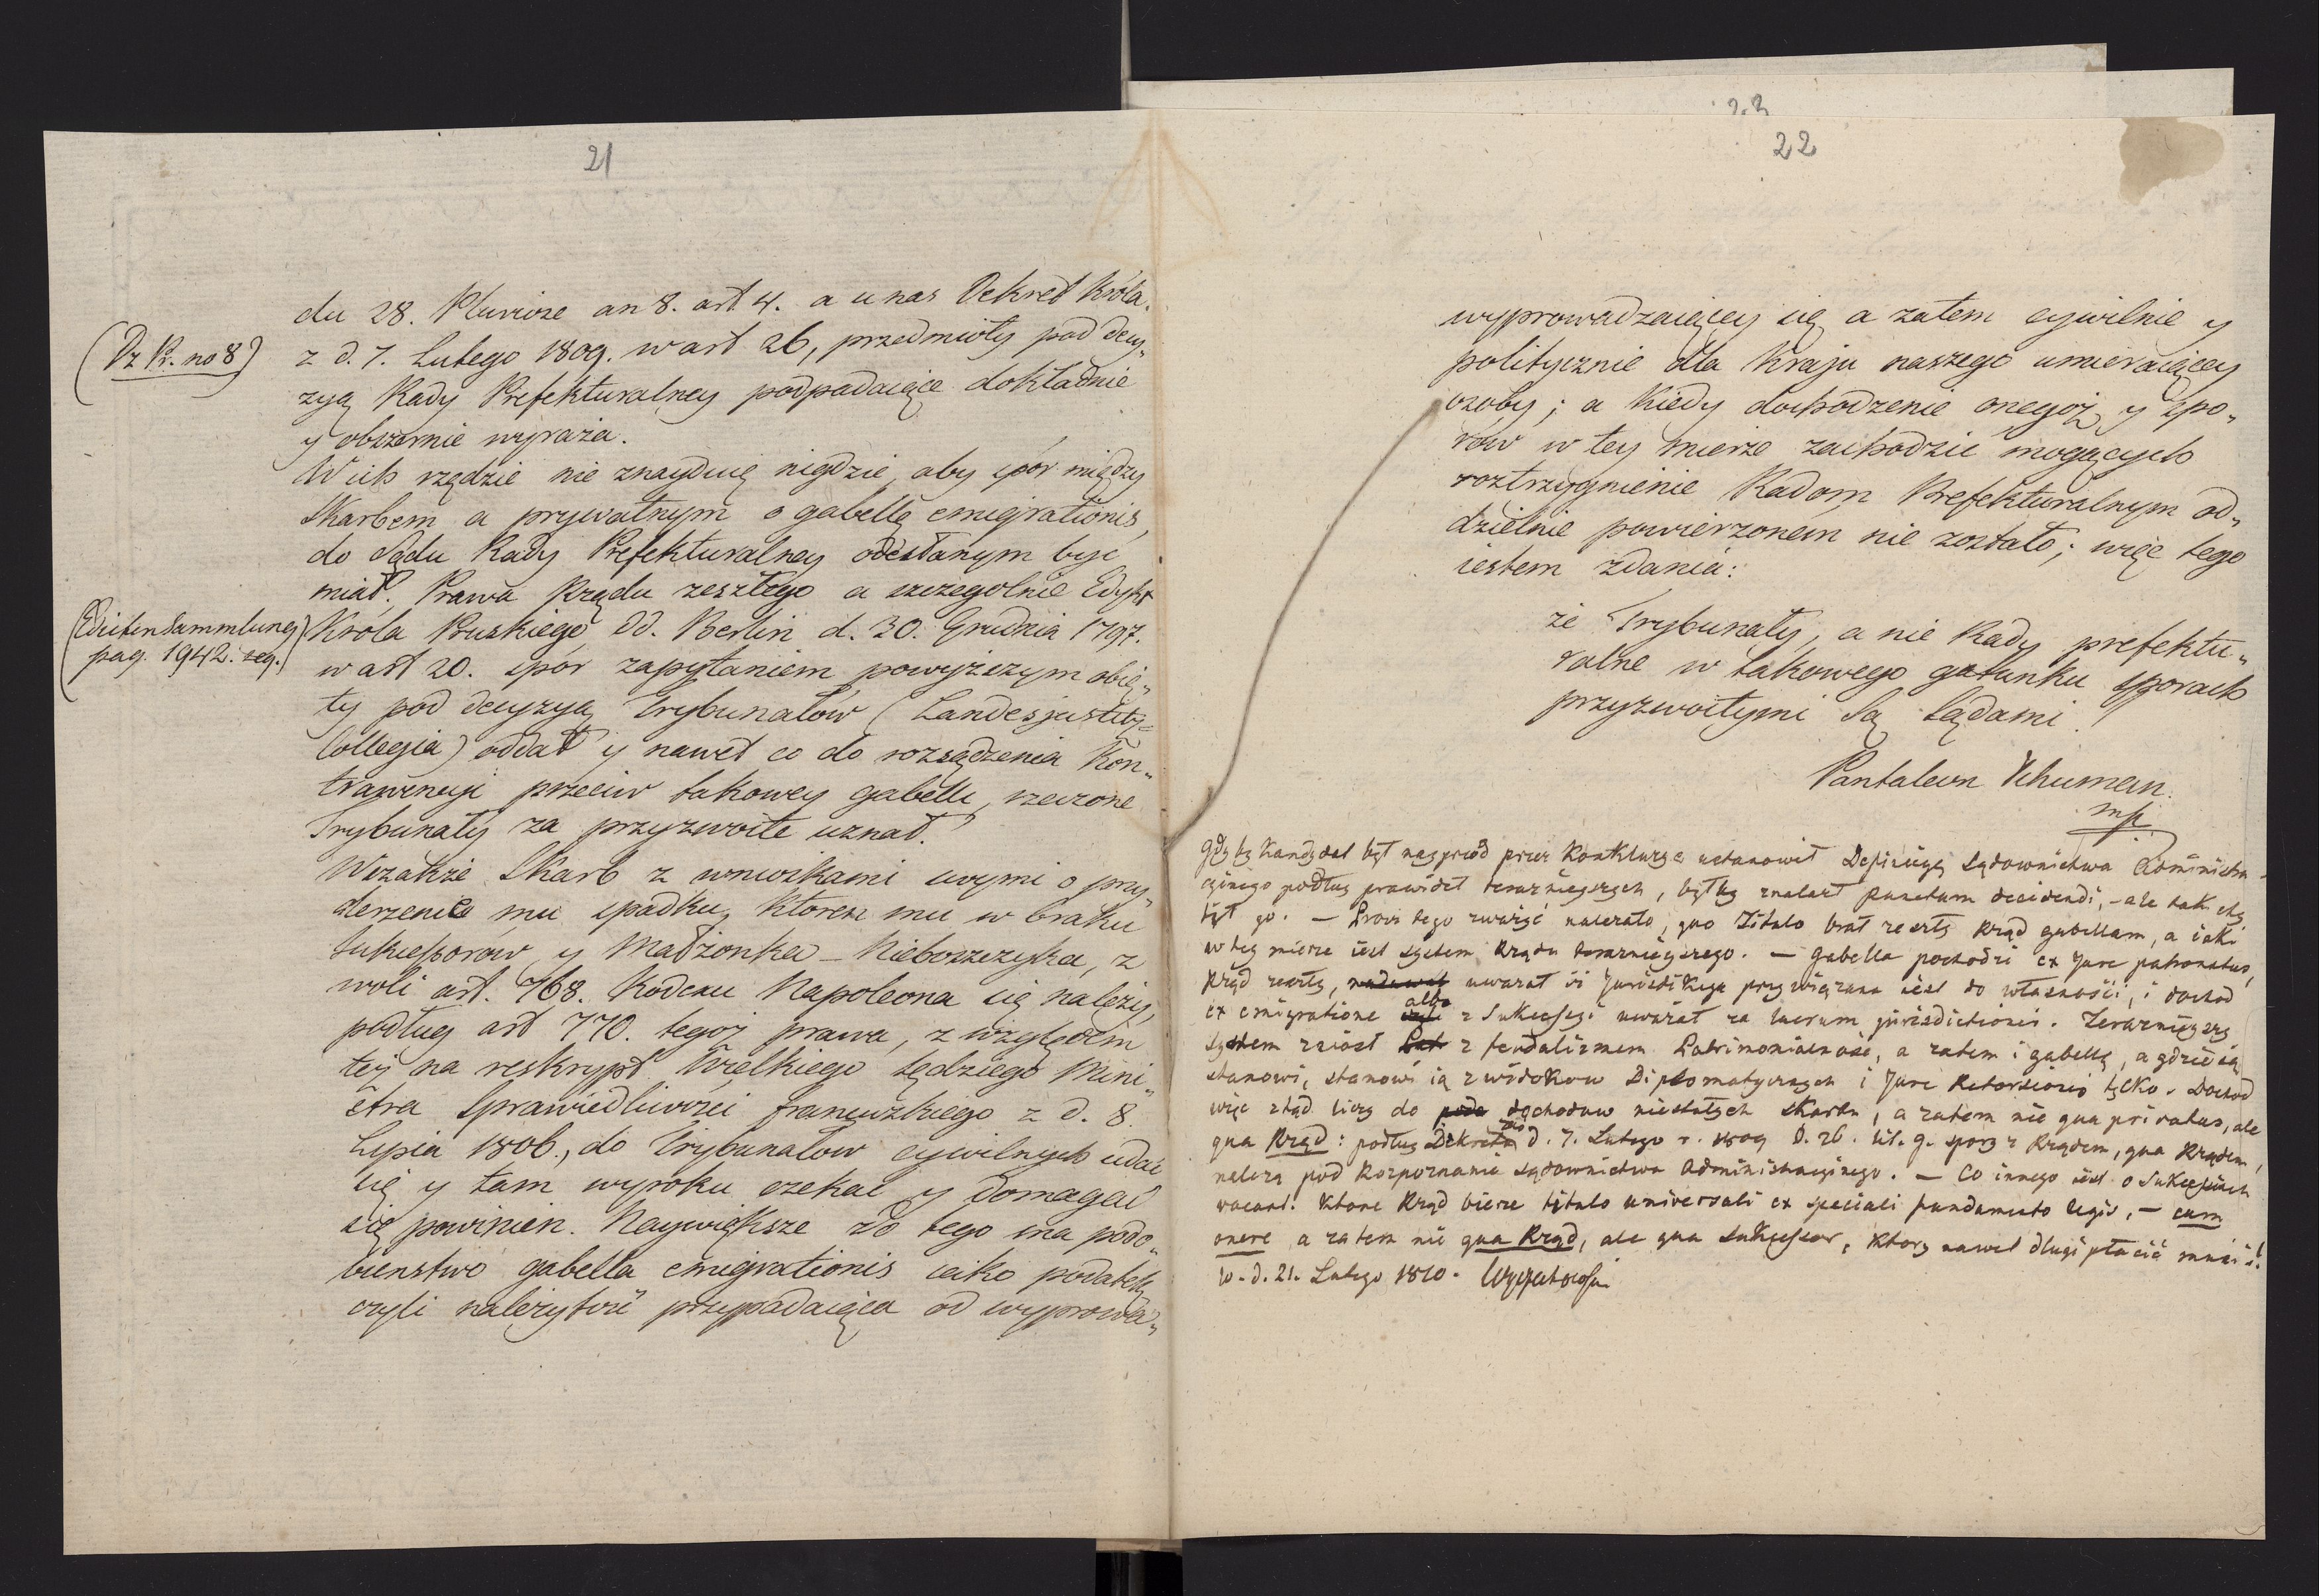 21
du 28. Pluviose an 8. art 4. a u nas Dekret Króla.
(Dz Pr. no 8)
z d. 7. Lutego 1809. w art 26, przedmioty pod decy„
zyą Rady Prefekturalney podpadaiące dokładnie
y obszernie wyraża.
W ich rzędzie nie znayduię nigdzie, aby spór między
Skarbem a prywatnym o gabellę emigrationis,
do Sądu Rady Prefekturalney odesłanym być
miał. Prawa Rządu zeszłego a szczegolnie Edykt
(Edicten Sammlung
pag. 1942. seq.)
Króla Pruskiego dd. Berlin d. 30. Grudnia 1797.
w art 20. spór zapytaniem powyższym obię„
ty pod decyzyą Trybunałow (Landesjustitz=
Collegia) oddał y nawet co do rozsądzenia Kon„
trawencyi przeciw takowey gabelli, rzeczone
Trybunały za przyzwoite uznał.
Wszakże Skarb z wnioskami swymi o przy„
derzenie mu spadku, ktoren mu w braku
Sukcessorów y Małżonka Nieboszczyka, z
woli art. 768. Kodexu Napoleona się należy,
podług art 770. tegoż prawa, z względem
też na reskrypt Wielkiego Sędziego Mini„
stra Sprawiedliwości francuzkiego z d. 8.
Lipca 1806., do Trybunałow cywilnych udać
się y tam wyroku czekać y domagać
się powinien. Naywiększe do tego ma podo„
bieństwo gabella emigrationis iako podatek
czyli należytość przypadaiąca od wyprowa„
22
22
wyprowadzaiącey się a zatem cywilnie y
politycznie dla kraju naszego umieraiącey
osoby; a kiedy dochodzenie onegoż y spo„
row w tey mierze zachodzić mogących
roztrzygnienie Radom Prefekturalnym od„
dzielnie powierzonem nie zostało; więc tego
iestem zdania:
że Trybunały, a nie Rady prefektu„
ralne w takowego gatunku sporach
przyzwoitymi są Sądami.
Pantaleon Schuman
mp
Gdyby Kandydat był nayprzód przez Konkluzye ustanowił Definicyą Sądownictwa Administra-
cyinego podług prawideł teraznieyszych, byłby znalazł punctum decidendi, - ale tak
go. — Procz tego zwarzyć nalezało, quo Titulo brał zeszły Rząd gabellam, a iaki
w tey mierze iest system Rządu teraznieyszego. — Gabella pochodzi ex Jure patronatus,
Rząd zeszły, uwazał iż Jurisdikcya przywiązana iest do własności, i dochod
ex emigratione albo z Sukcessyi uwazał za lucrum jurisdictionis. Teraznieyszy
system zniosł z feudalizmem Patrimonialność, a zatem i gabellę, a gdzie ią
stanowi, stanowi ią z widokow Diplomatycznych i Jure Retorsionis tylko. Dochod
więc ztąd liczy do dochodow niestałych skarbu, a zatem nie qua privatus, ale
qua Rząd: podług Dekretu zaś d. 7. Lutego r. 1809 §. 26. lit. g. spory z Rządem, qua Rządem,
nalezą pod Rozpoznanie sądownictwa Administracyinego. — Co innego iest o Sukcessiach
vacant. Ktore Rząd bierze titulo universali ex speciali fundamento legis, — cum
onere a zatem nie qua Rząd, ale qua Sukcessor, Ktory nawet długi płacić musi!
W. d. 21. Lutego 1810.